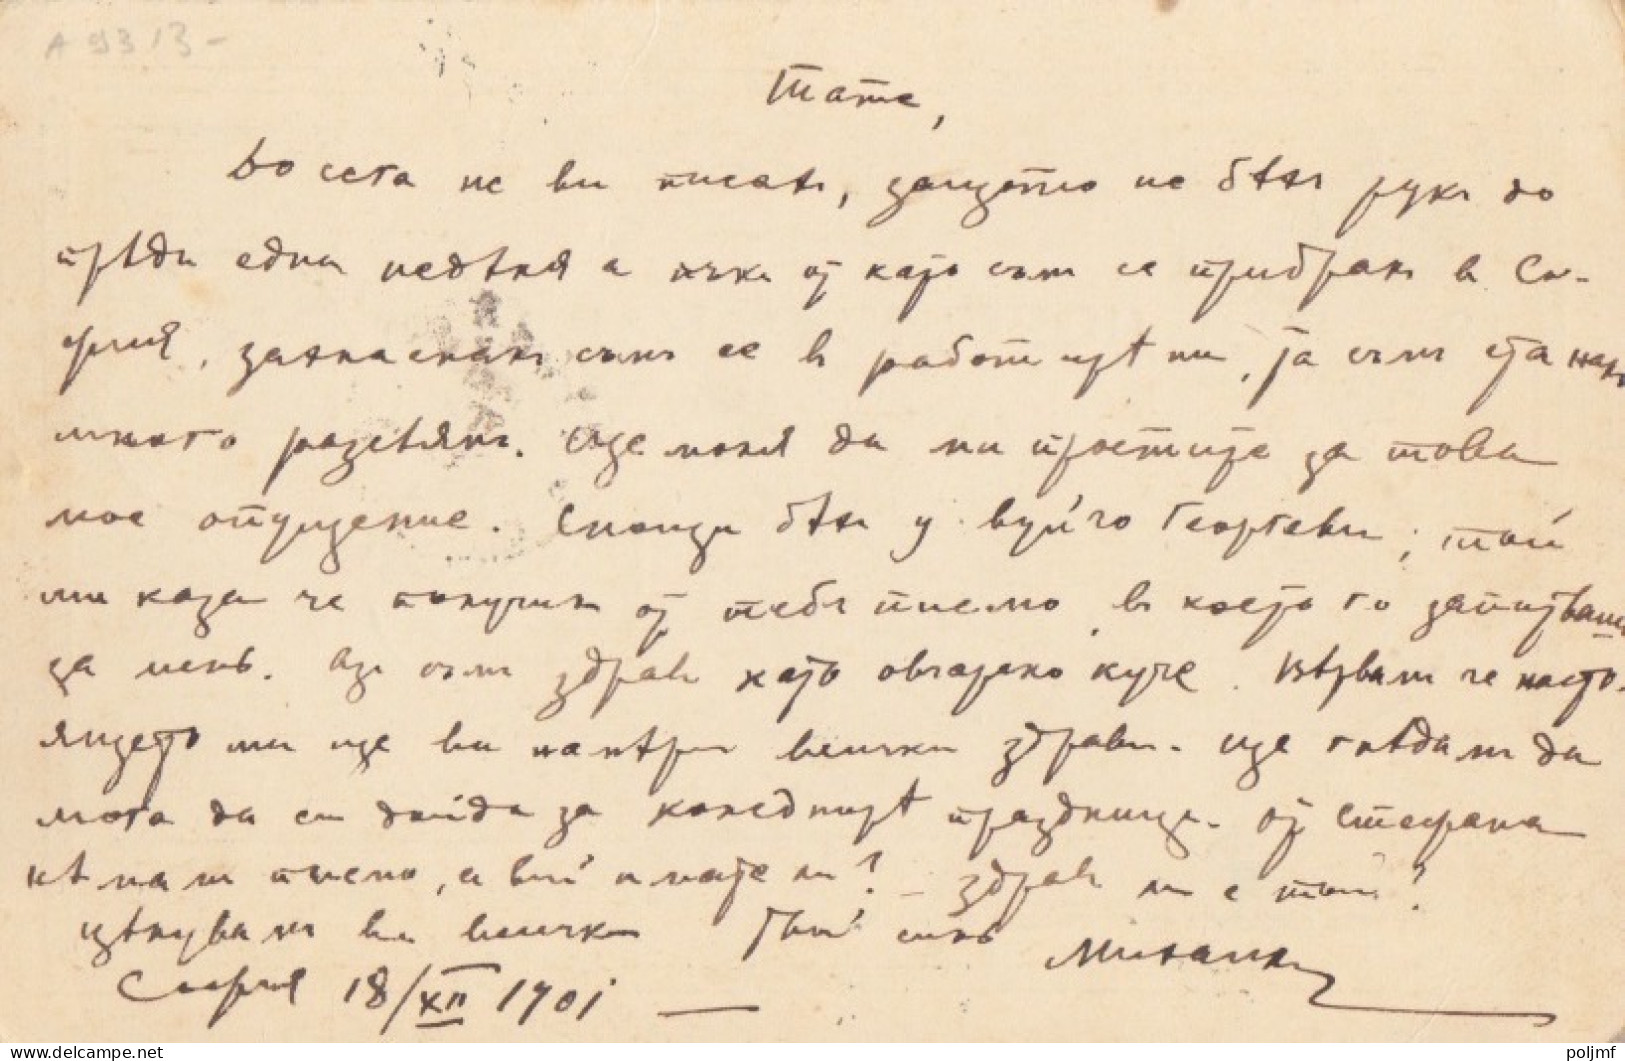 A 93 13-
Тате,
До сега не ви писахъ, защото не бѣхъ тукъ до
прѣди една недѣля а пъкъ отъ като съмъ се прибралъ въ Со-
фия, съмъ се въ работитѣ ми, та съмъ станалъ
много разсѣянъ. Ще моля да ми простите за това
мое опущение. Снощи бѣхъ у вуйчо Георгеви, той
ми каза че получилъ отъ тебъ писмо, въ което го запитвашъ
за менъ. Азъ съмъ здравъ като овчарско куче. Вѣрвамъ че насто-
ящето ми ще ви намѣри всички здрави. Ще гледамъ да
мога да си дойда за коледнитѣ праздници. Отъ Стефана
нѣмамъ писмо, а вий имате ли? – Здравъ ли е той?
Цѣлувамъ ви всички Твой синъ Михаилъ
София 18/XII 1901 —
delcampe.net
poljmf